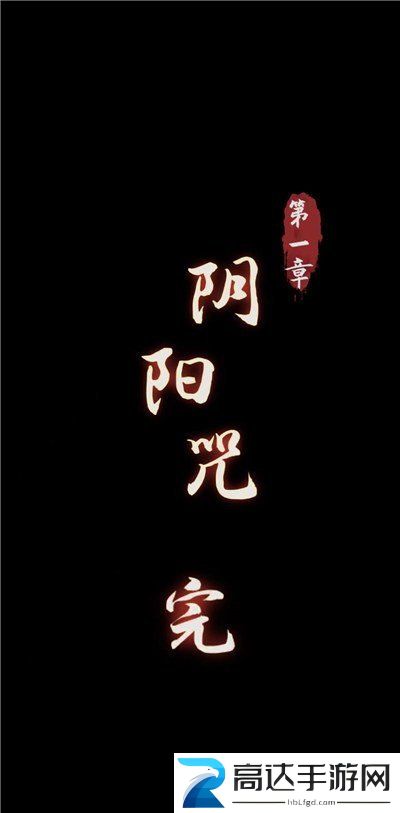 第一章
阴阳咒
完
高达手游网
hbLfgd.com